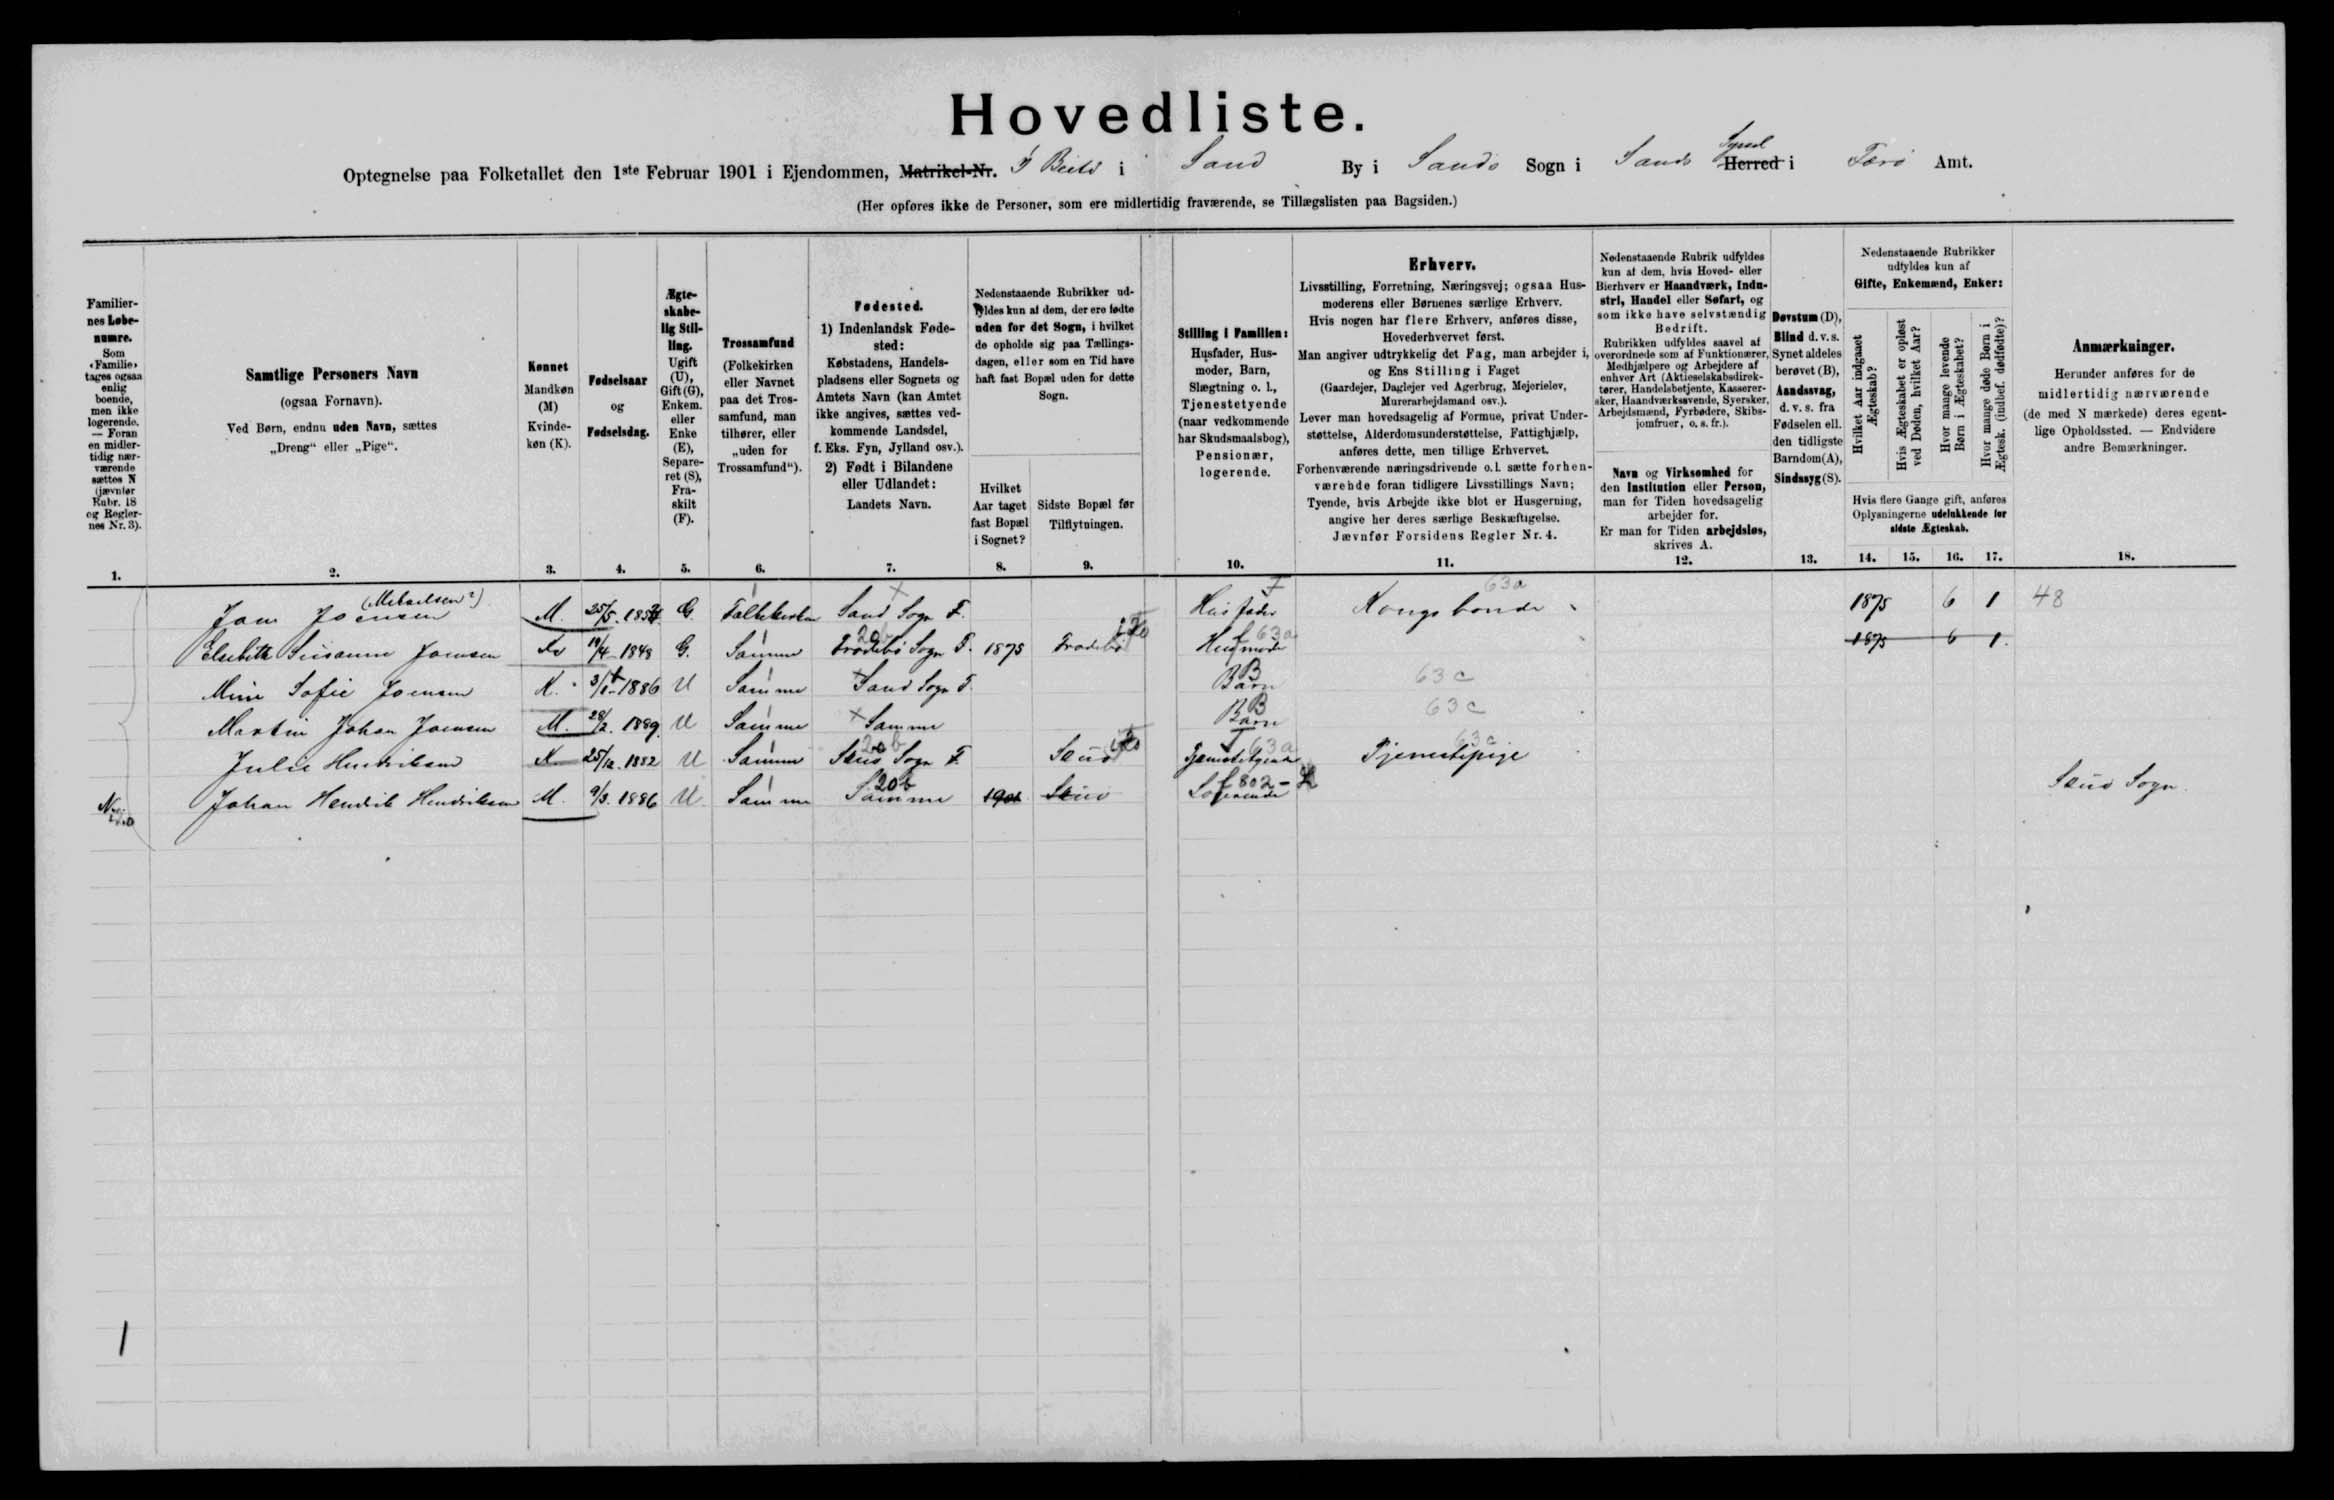 Hovedliste.
Optegnelse paa Folketallet den 1ste Februar 1901 i Ejendommen, Matrikel-Nr. i Sand By i Sands Sogn i Sands Syssel Herred i Færö Amt.
(Her opføres ikke de Personer, som ere midlertidig fraværende, se Tillægslisten paa Bagsiden.)
Familier-
nes Løbe-
numre.
Som
«Familie»
tages ogsaa
enlig
boende,
men ikke
logerende.
— Foran
en midler-
tidig nær-
værende
sættes N
(jævnfør
Rubr. 18
og Regler-
nes Nr. 3).
1.
Samtlige Personers Navn
(ogsaa Fornavn).
Ved Børn, endnu uden Navn, sættes
„Dreng“ eller „Pige“.
2.
Kønnet
Mandkøn
(M)
Kvinde-
køn (K).
3.
Fødselsaar
og
Fødselsdag.
4.
Ægte-
skabe-
lig Stil-
ling.
Ugift
(U),
Gift (G),
Enkem.
eller
Enke
(E),
Separe-
ret (S),
Fra-
skilt
(F).
5.
Trossamfund
(Folkekirken
eller Navnet
paa det Tros-
samfund, man
tilhører, eller
„uden for
Trossamfund“).
6.
Fødested.
1) Indenlandsk Føde-
sted:
Købstadens, Handels-
pladsens eller Sognets og
Amtets Navn (kan Amtet
ikke angives, sættes ved-
kommende Landsdel,
f. Eks. Fyn, Jylland osv.).
2) Født i Bilandene
eller Udlandet:
Landets Navn.
7.
Nedenstaaende Rubrikker ud-
fyldes kun af dem, der ere fødte
uden for det Sogn, i hvilket
de opholde sig paa Tællings-
dagen, eller som en Tid have
haft fast Bopæl uden for dette
Sogn.
Hvilket
Aar taget
fast Bopæl
i Sognet?
8.
Sidste Bopæl før
Tilflytningen.
9.
Stilling i Familien:
Husfader, Hus-
moder, Barn,
Slægtning o. l.,
Tjenestetyende
(naar vedkommende
har Skudsmaalsbog),
Pensionær,
logerende.
10.
Erhverv.
Livsstilling, Forretning, Næringsvej; ogsaa Hus-
moderens eller Børnenes særlige Erhverv.
Hvis nogen har flere Erhverv, anføres disse,
Hovederhvervet først.
Man angiver udtrykkelig det Fag, man arbejder i,
og Ens Stilling i Faget
(Gaardejer, Daglejer ved Agerbrug, Mejerielev,
Murerarbejdsmand osv.).
Lever man hovedsagelig af Formue, privat Under-
støttelse, Alderdomsunderstøttelse, Fattighjælp,
anføres dette, men tillige Erhvervet.
Forhenværende næringsdrivende o. l. sætte forhen-
værende foran tidligere Livsstillings Navn;
Tyende, hvis Arbejde ikke blot er Husgerning,
angive her deres særlige Beskæftigelse.
Jævnfør Forsidens Regler Nr. 4.
11.
Nedenstaaende Rubrik udfyldes
kun af dem, hvis Hoved- eller
Bierhverv er Haandværk, Indu-
stri, Handel eller Søfart, og
som ikke have selvstændig
Bedrift.
Rubrikken udfyldes saavel af
overordnede som af Funktionærer,
Medhjælpere og Arbejdere af
enhver Art (Aktieselskabsdirek-
tører, Handelsbetjente, Kasserer-
sker, Haandværkssvende, Syersker,
Arbejdsmænd, Fyrbødere, Skibs-
jomfruer, o. s. fr.).
Navn og Virksomhed for
den Institution eller Person,
man for Tiden hovedsagelig
arbejder for.
Er man for Tiden arbejdsløs,
skrives A.
12.
Døvstum (D),
Blind d. v. s.
Synet aldeles
berøvet (B),
Aandssvag,
d. v. s. fra
Fødselen ell.
den tidligste
Barndom (A),
Sindssyg (S).
13.
Nedenstaaende Rubrikker
udfyldes kun af
Gifte, Enkemænd, Enker:
Hvilket Aar indgaaet
Ægteskab?
Hvis Ægteskabet er opløst
ved Døden, hvilket Aar?
Hvor mange levende
Børn i Ægteskabet?
Hvor mange døde Børn i
Ægtesk. (indbef. dødfødte)?
Hvis flere Gange gift, anføres
Oplysningerne udelukkende for
sidste Ægteskab.
14. 15. 16. 17.
Anmærkninger.
Herunder anføres for de
midlertidig nærværende
(de med N mærkede) deres egent-
lige Opholdssted. — Endvidere
andre Bemærkninger.
18.
Joen Joensen M. 25/5. G. Folkekirken Sand Sogn F. Husfader Kongsbonde 63a 1875 6 1 48
Elsebeth Susanne Joensen 19/4-1848 G. Samme Sogn F. 1875 Husmoder 63a 1875 6 1.
Sofie Joensen K. 1886 U Samme Sand Sogn F. Barn B 63c
Martin Johan Joensen M. 28/2. 1889 U Samme Samme Barn B 63c
Julie Hendriksen K 25/12. 1882 U Samme Skuö Sogn F. Skuö Tjenestetyende 63a Tjenestepige 63c
N Johan Hendrik Hendriksen M. 9/3. 1886 U Samme Samme 20b 1901 Skuö Logerende Skuö Sogn.
1